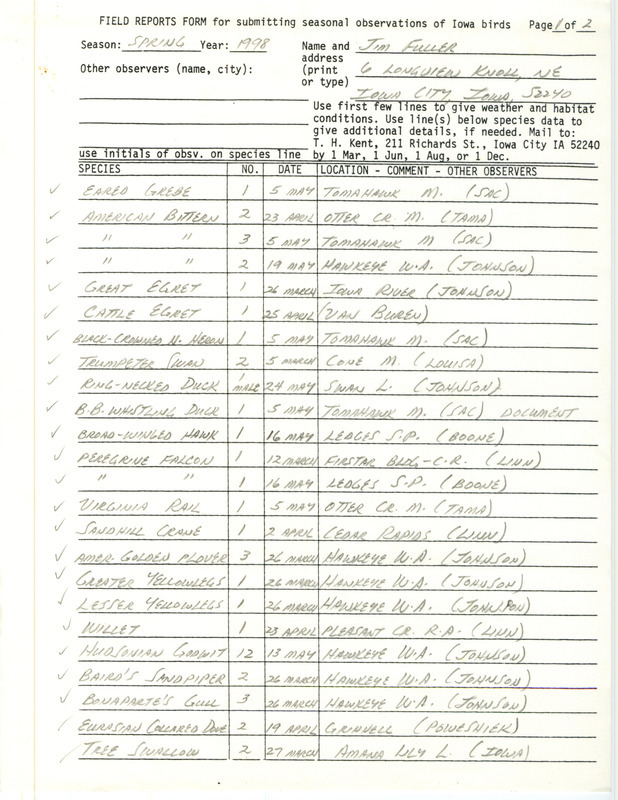 FIELD REPORTS FORM for submitting seasonal observations of Iowa birds Page 1 of 2
Season: SPRING Year: 1998 Name and JIM FULLER
address
Other observers (name, city): (print 6 LONGVIEW KNOLL, NE
or type)
IOWA CITY, IOWA, 52240
Use first few lines to give weather and habitat
conditions. Use line(s) below species data to
give additional details, if needed. Mail to:
T. H. Kent, 211 Richards St., Iowa City IA 52240
use initials of obsv. on species line by 1 Mar, 1 Jun, 1 Aug, or 1 Dec.
SPECIES NO. DATE LOCATION - COMMENT - OTHER OBSERVERS
✓ EARED GREBE 1 5 MAY TOMAHAWK M. (SAC)
✓ AMERICAN BITTERN 2 23 APRIL OTTER CR. M. (TAMA)
✓ " " 3 5 MAY TOMAHAWK M (SAC)
✓ " " 2 19 MAY HAWKEYE W.A. (JOHNSON)
✓ GREAT EGRET 1 26 MARCH IOWA RIVER (JOHNSON)
✓ CATTLE EGRET 1 25 APRIL (VAN BUREN)
✓ BLACK-CROWNED N. HERON 1 5 MAY TOMAHAWK M. (SAC)
✓ TRUMPETER SWAN 2 5 MARCH CONE M. (LOUISA)
✓ RING-NECKED DUCK 1 MALE 24 MAY SWAN L. (JOHNSON)
✓ B.B. WHISTLING DUCK 1 5 MAY TOMAHAWK M. (SAC) DOCUMENT
✓ BROAD-WINGED HAWK 1 16 MAY LEDGES S.P. (BOONE)
✓ PEREGRINE FALCON 1 12 MARCH FIRSTAR BLDG-C.R. (LINN)
✓ " " 1 16 MAY LEDGES S.P. (BOONE)
✓ VIRGINIA RAIL 1 5 MAY OTTER CR. M. (TAMA)
✓ SANDHILL CRANE 1 2 APRIL CEDAR RAPIDS (LINN)
✓ AMER. GOLDEN PLOVER 3 26 MARCH HAWKEYE W.A. (JOHNSON)
✓ GREATER YELLOWLEGS 1 26 MARCH HAWKEYE W.A. (JOHNSON)
✓ LESSER YELLOWLEGS 1 26 MARCH HAWKEYE W.A. (JOHNSON)
✓ WILLET 1 23 APRIL PLEASANT CR. R.A. (LINN)
✓ HUDSONIAN GODWIT 12 13 MAY HAWKEYE W.A. (JOHNSON)
✓ BAIRD'S SANDPIPER 2 26 MARCH HAWKEYE W.A. (JOHNSON)
✓ BONAPARTE'S GULL 3 26 MARCH HAWKEYE W.A. (JOHNSON)
/ EURASIAN COLLARED DOVE 2 19 APRIL GRINNELL (POWESHIEK)
/ TREE SWALLOW 2 27 MARCH AMANA LILY L. (IOWA)